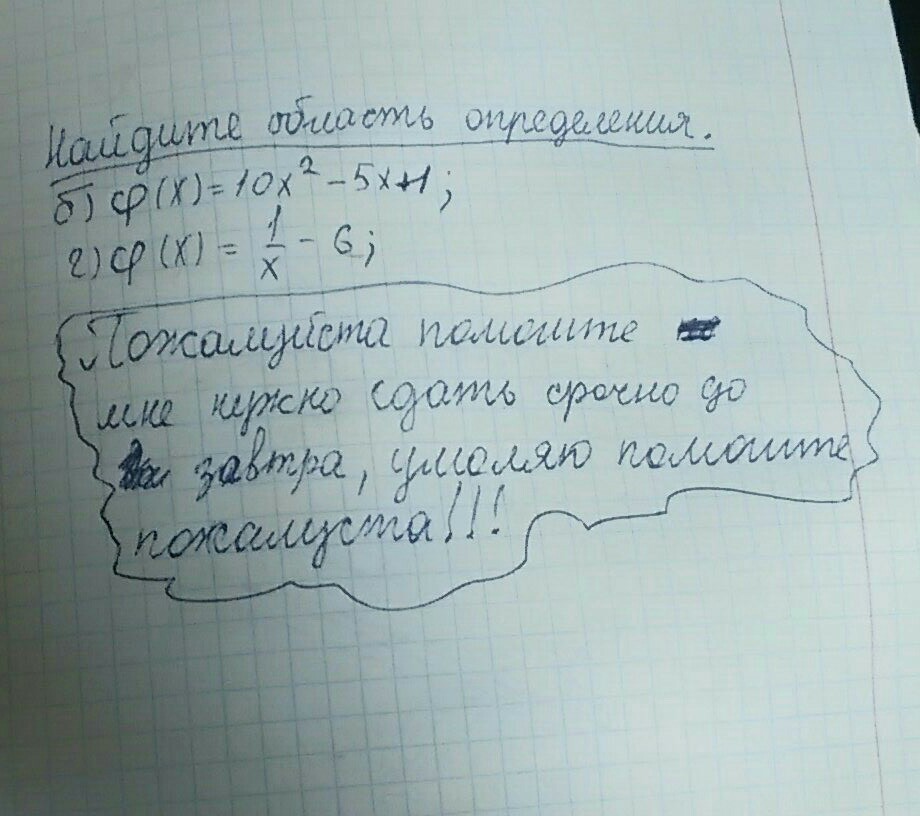 Найдите область определения.
б) φ(x)=10x²-5x+1;
г) φ(x) = 1/x - 6;
Пожалуйста помоште
мне нужно сдать срочно до
завтра, умоляю помоште
пожалуста!!!